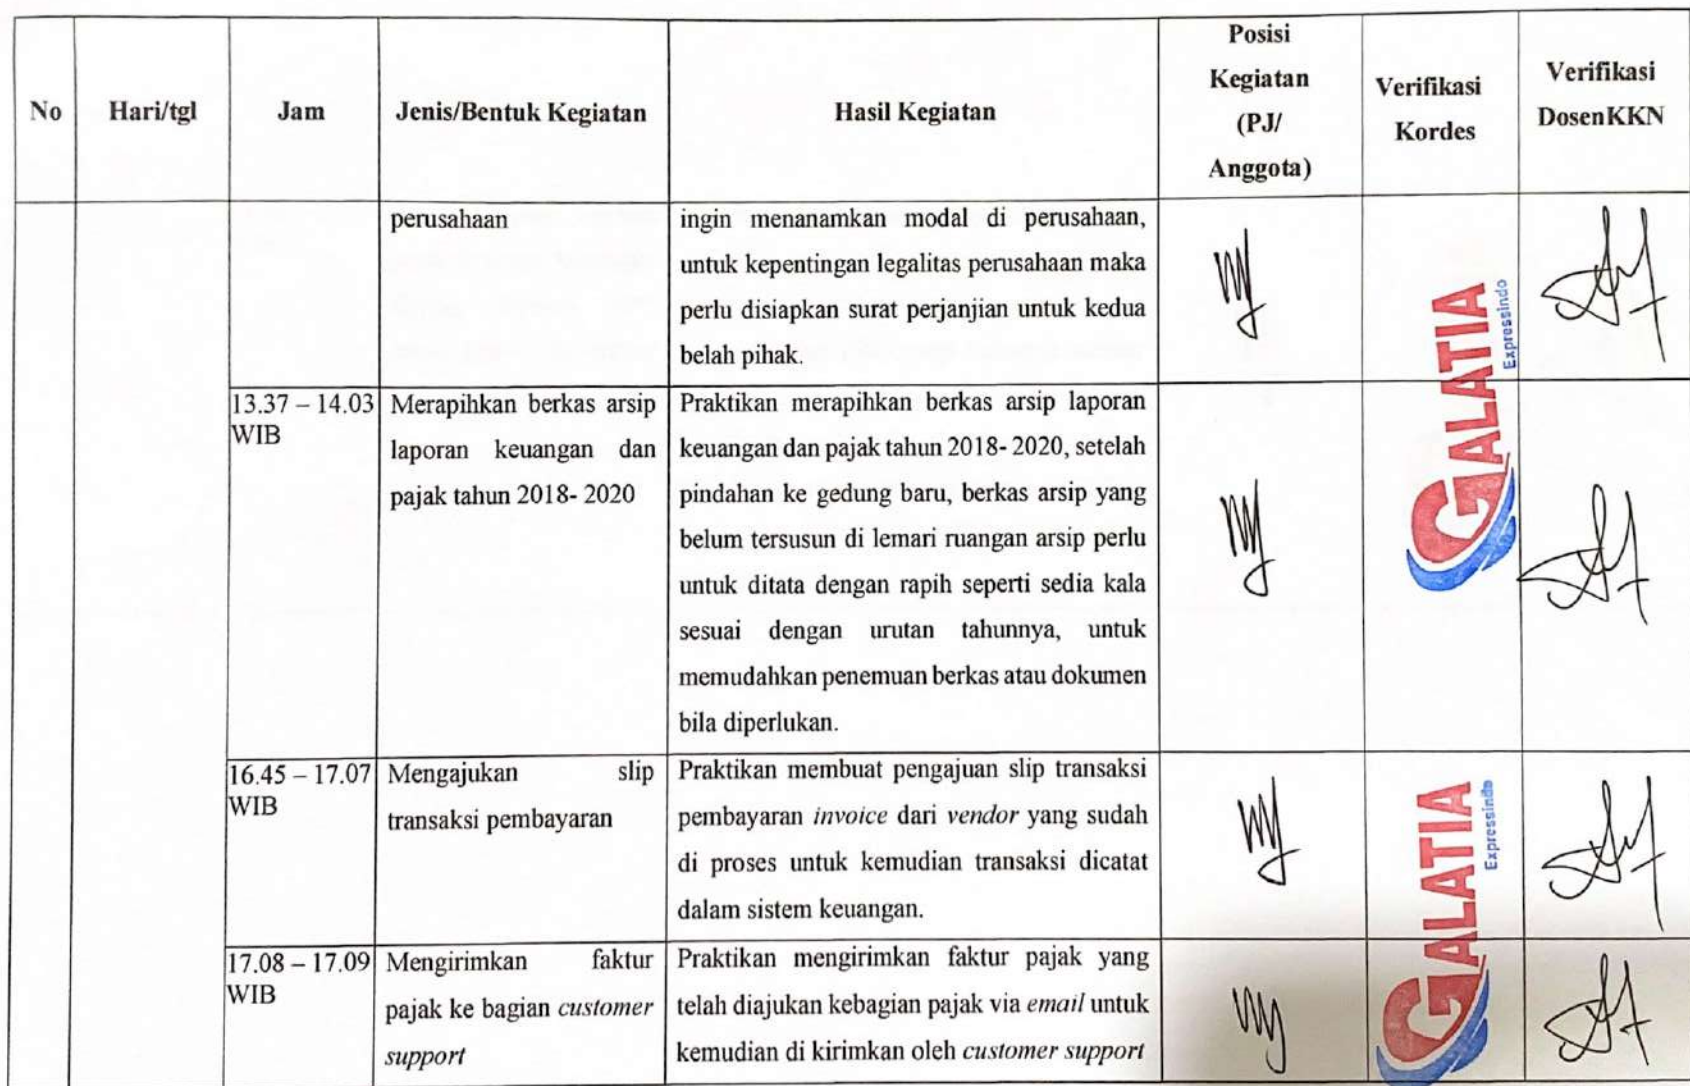 No
Hari/tgl
Jam
Jenis/Bentuk Kegiatan
Hasil Kegiatan
Posisi
Kegiatan
(PJ/
Anggota)
Verifikasi
Kordes
Verifikasi
DosenKKN
perusahaan
ingin menanamkan modal di perusahaan,
untuk kepentingan legalitas perusahaan maka
perlu disiapkan surat perjanjian untuk kedua
belah pihak.
GALATIA
Expressindo
13.37 – 14.03
WIB
Merapihkan berkas arsip
laporan keuangan dan
pajak tahun 2018- 2020
Praktikan merapihkan berkas arsip laporan
keuangan dan pajak tahun 2018- 2020, setelah
pindahan ke gedung baru, berkas arsip yang
belum tersusun di lemari ruangan arsip perlu
untuk ditata dengan rapih seperti sedia kala
sesuai dengan urutan tahunnya, untuk
memudahkan penemuan berkas atau dokumen
bila diperlukan.
16.45 – 17.07
WIB
Mengajukan slip
transaksi pembayaran
Praktikan membuat pengajuan slip transaksi
pembayaran invoice dari vendor yang sudah
di proses untuk kemudian transaksi dicatat
dalam sistem keuangan.
GALATIA
Expressindo
17.08 – 17.09
WIB
Mengirimkan faktur
pajak ke bagian customer
support
Praktikan mengirimkan faktur pajak yang
telah diajukan kebagian pajak via email untuk
kemudian di kirimkan oleh customer support